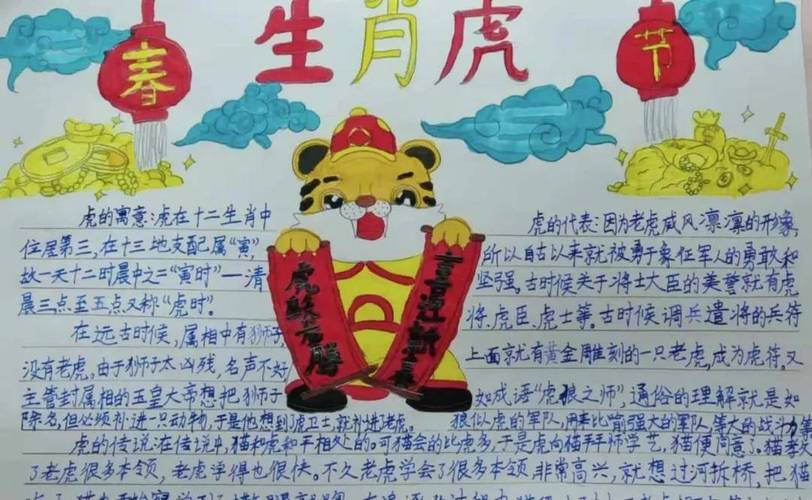 春
生肖虎
节
虎的寓意:虎在十二生肖中
位居第三,在十二地支配属“寅”
故一天十二时辰中之二“寅时”一清
晨三点至五点又称“虎时”。
在远古时候,属相中有狮子,
没有老虎。由于狮子太凶残,名声不好
主管封属相的玉皇大帝想把狮子
除名,但必须补进一只动物,于是他想到了虎卫士,就补进了老虎。
虎的代表:因为老虎威风凛凛的形象,
所以自古以来就被勇于象征军人的勇敢和
坚强。古时候关于将士大臣的美誉就有虎
将、虎臣、虎士等。古时候调兵遣将的兵符
上面就有黄金雕刻的一只老虎,成为虎符。又
如成语“虎狼之师”,通俗的理解就是如
狼似虎的军队,用来比喻强大的军队,等大的战斗力
喜迎新春
虎的传说:在传说中,猫和虎和平相处的。可猫会的比虎多,于是虎向猫拜师学艺,猫便同意了。猫教
了老虎很多本领,老虎学得也很快。不久老虎学会了很多本领非常高兴,就想过河拆桥,把猫